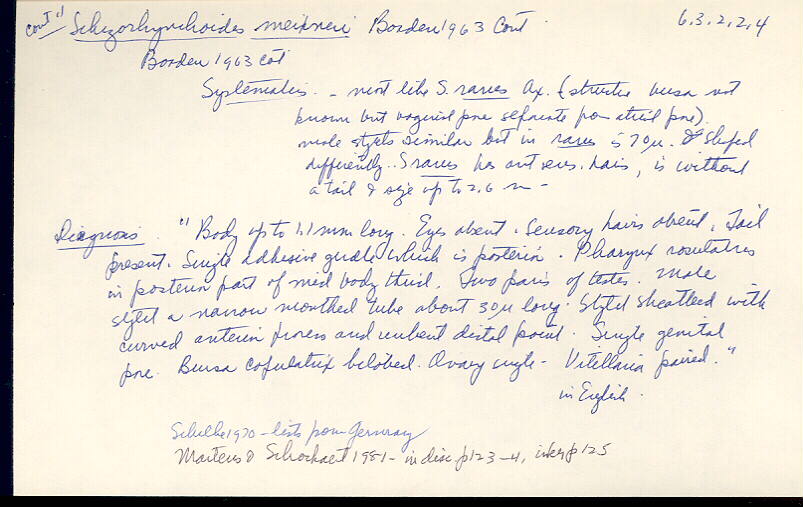 cont'd Schizorhynchoides meixneri Boaden 1963 Cont 6.3.2.2.4
Boaden 1963 cot
Systematics - most like S. rarus Ax. (structure bursa not
known but vaginal pore separate from atrial pore).
male stylets similar but in rarus is 70µ. & shaped
differently. S rarus has ant sens. hairs, is without
a tail & size up to 2.6 m -
Diagnosis. "Body up to 1.1 mm long. Eyes absent. Sensory hairs absent. Tail
present. Single adhesive girdle which is posterior. Pharynx rosulatus
in posterior part of mid body third. Two pairs of testes. Male
stylet a narrow mouthed tube about 30µ long. Stylet sheathed with
curved anterior process and recurbent distal point. Single genital
pore. Bursa copulatrix bilobed. Ovary single - Vitellaria paired."
in English.
Schilke 1970 - lists from Germany
Martens & Schockaert 1981 - in disc p123-4, in key p125